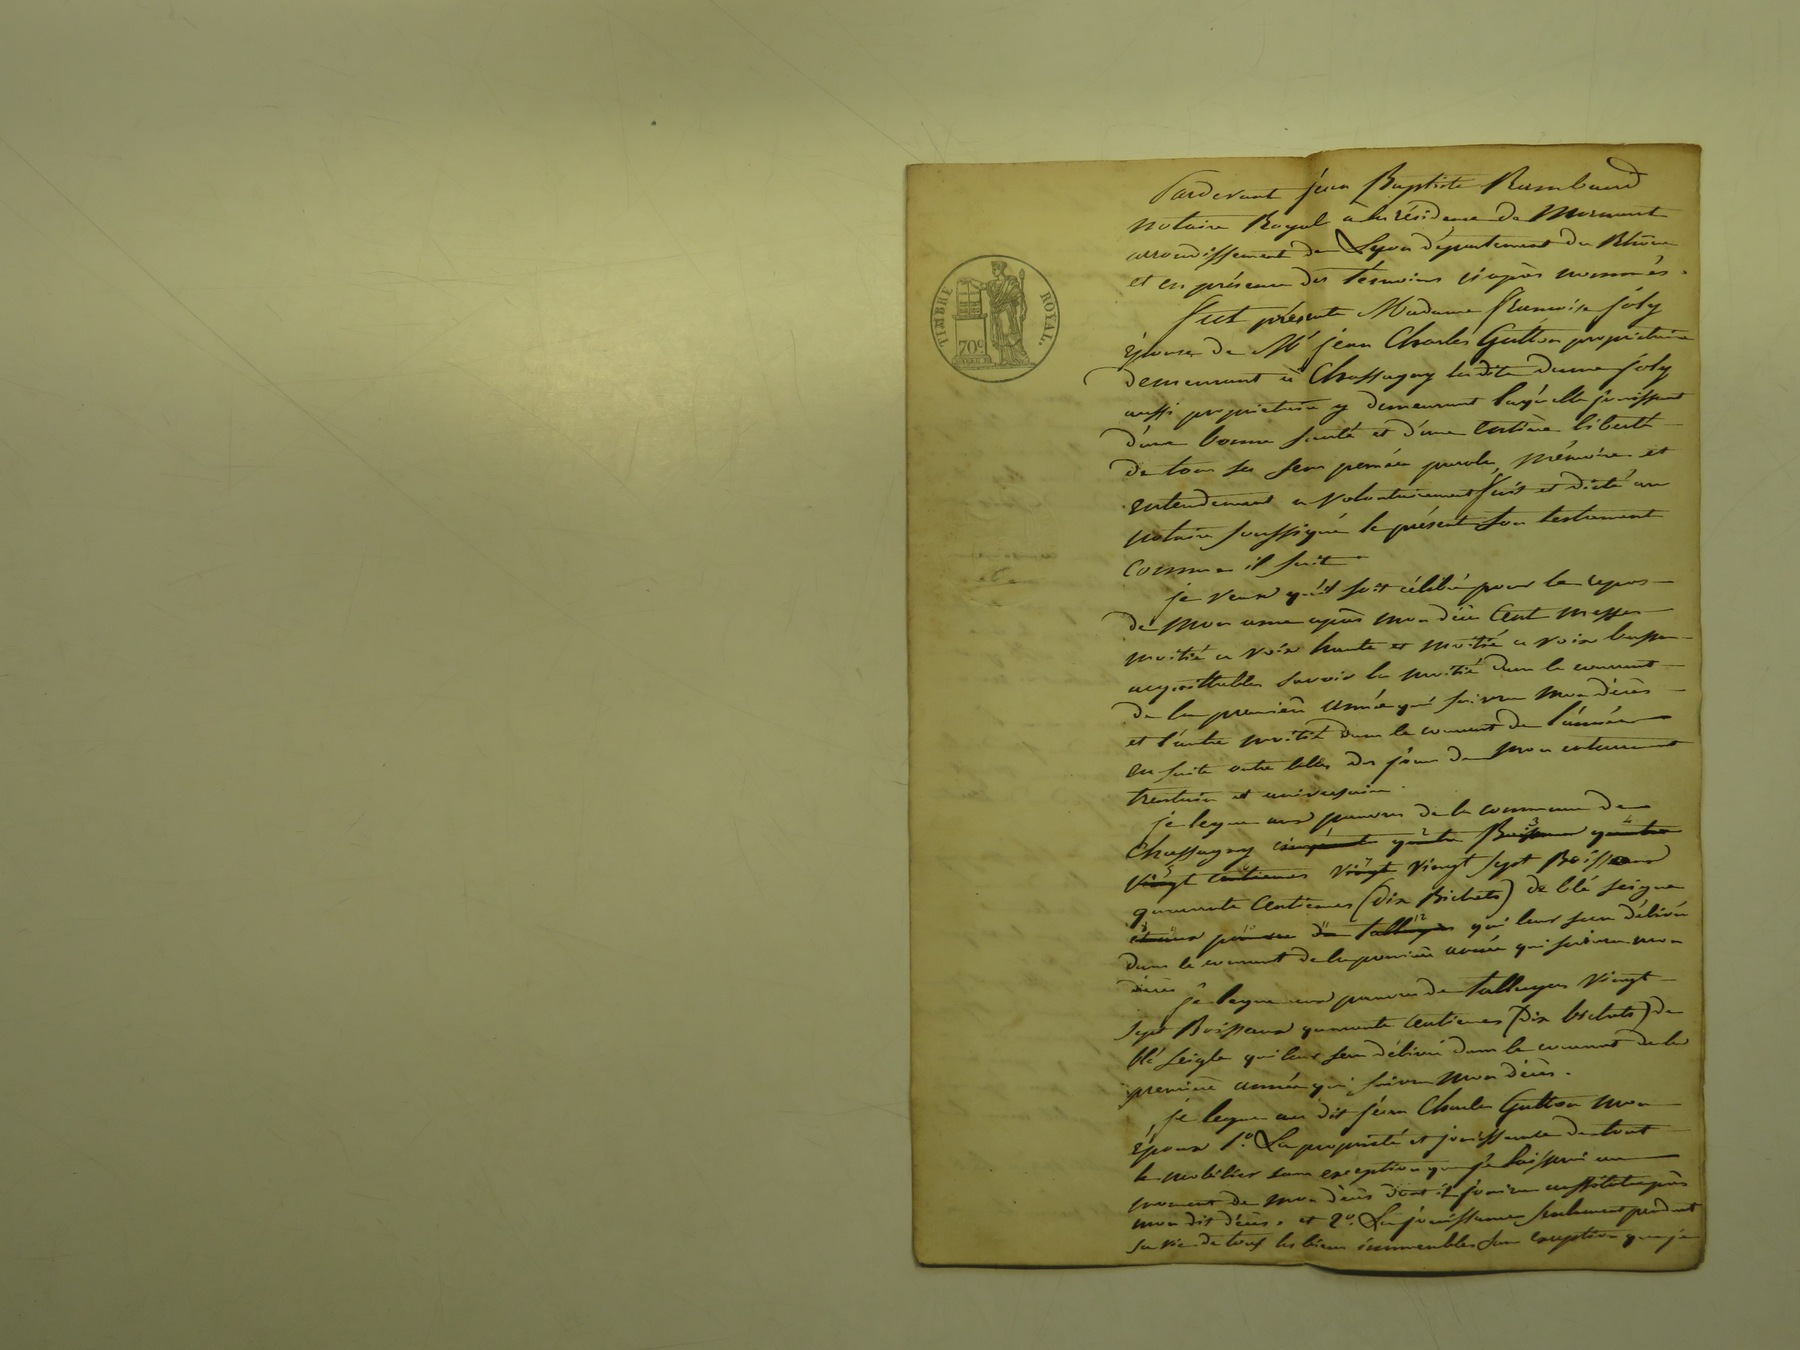 TIMBRE ROYAL.
70c
Pardevant jean Baptiste Rambaud
notaire Royal à la résidence de Mornant
arrondissement de Lyon département du Rhône
et en présence des témoins ci après nommés.
fut présente Madame françoise joly
épouse de Mr jean Charles Gutton propriétaire
demeurant à Chassagny ladite dame joly
aussi propriétaire y demeurant laquelle jouissant
d'une bonne santé et d'une entière liberté
de tous ses sens pensée parole, mémoire et
entendement a volontairement fait et dicté au
notaire soussigné le présent son testament
comme il suit
je veux qu'il soit célébré pour le repos
de mon ame après mon décès Cent messes
moitié a voix haute et moitié a voix basse
acquittables savoir la moitié dans le courant
de la première année qui suivra mon décès
et l'autre moitié dans le courant de l'année
en suite outre celles des jours de mon enterrement
trentain et aniversaire.
je legue aux pauvres de la commune de
Chassagny cinquante quatre Boisseaux quatre
vingt centiemes vingt vingt sept Boisseaux
quarante Centiemes (dix Bichets) de blé seigle
et aux pauvres de Talluyers qui leur sera délivré
dans le courant de la première année qui suivra mon
décès
je legue aux pauvres de talluyers vingt
sept Boisseaux quarante centiemes (dix bichets) de
blé seigle qui leur sera délivré dans le courant de la
première année qui suivra mon décès.
je legue au dit jean Charles Gutton mon
époux 1o. La propriété et jouissance de tout
le mobilier sans exception que je laisserai au
moment de mon décès dont il jouira aussitot après
mon dit décès. et 2o. La jouissance seulement pendant
sa vie de tous les biens immeubles sans exception que je